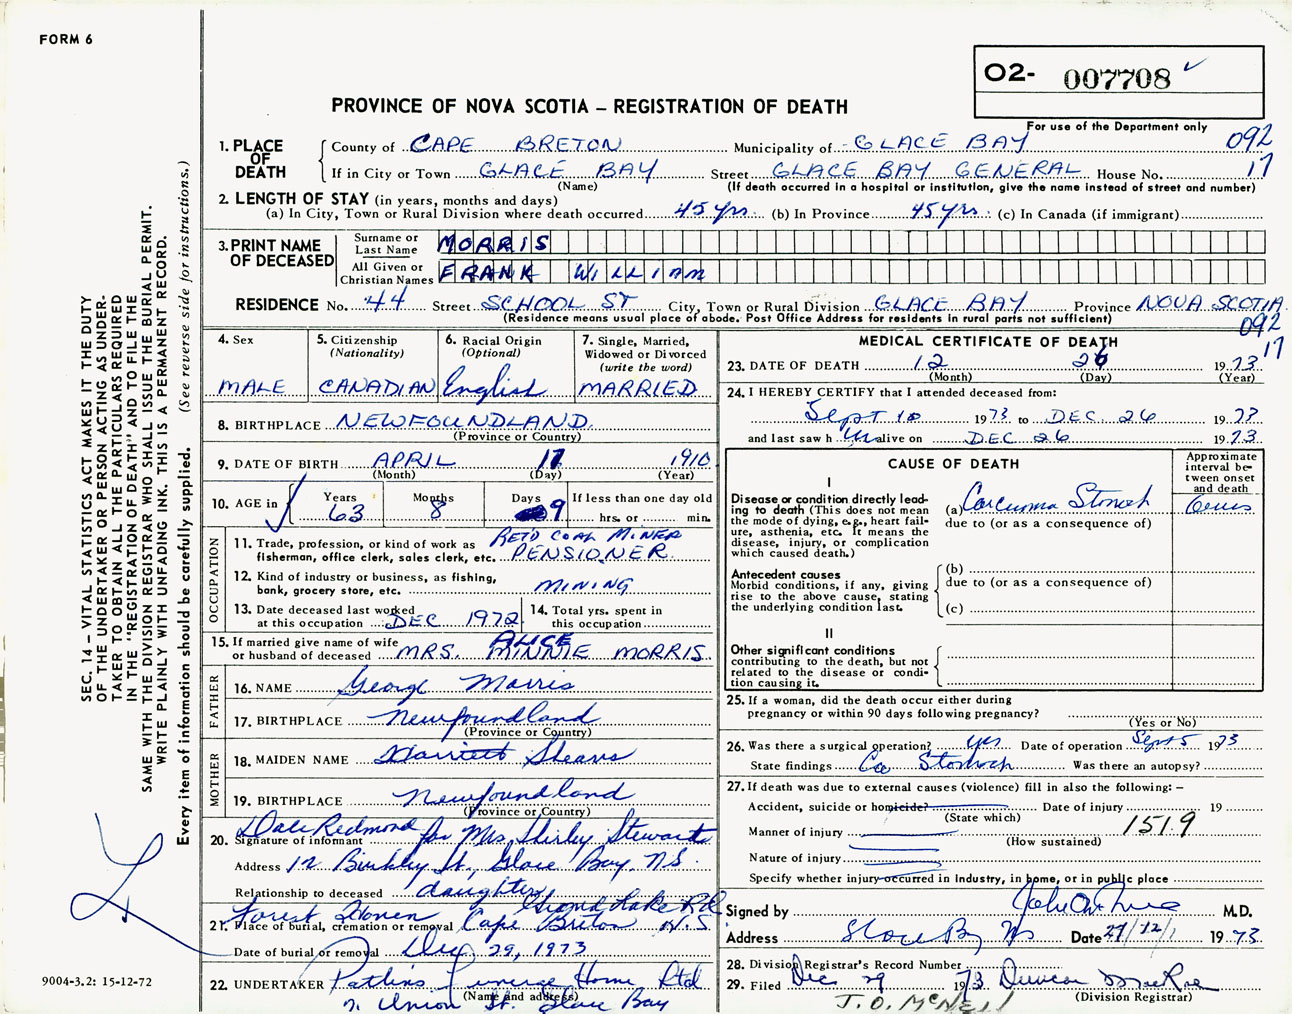 FORM 6
O2- 007708
PROVINCE OF NOVA SCOTIA – REGISTRATION OF DEATH
For use of the Department only
1. PLACE OF DEATH
County of CAPE BRETON Municipality of GLACE BAY 092
If in City or Town GLACE BAY Street GLACE BAY GENERAL House No. 17
(Name) (If death occurred in a hospital or institution, give the name instead of street and number)
2. LENGTH OF STAY (in years, months and days)
(a) In City, Town or Rural Division where death occurred 45 yrs. (b) In Province 45 yrs. (c) In Canada (if immigrant)
3. PRINT NAME OF DECEASED
Surname or Last Name MORRIS
All Given or Christian Names FRANK WILLIAM
RESIDENCE No. 44 Street SCHOOL ST City, Town or Rural Division GLACE BAY Province NOVA SCOTIA
(Residence means usual place of abode. Post Office Address for residents in rural parts not sufficient) 092
17
4. Sex MALE
5. Citizenship (Nationality) CANADIAN
6. Racial Origin (Optional) English
7. Single, Married, Widowed or Divorced (write the word) MARRIED
8. BIRTHPLACE NEWFOUNDLAND
(Province or Country)
9. DATE OF BIRTH APRIL 17 1910
(Month) (Day) (Year)
10. AGE in Years 63 Months 8 Days 9 If less than one day old hrs. or min.
OCCUPATION
11. Trade, profession, or kind of work as fisherman, office clerk, sales clerk, etc. RET'D COAL MINER PENSIONER
12. Kind of industry or business, as fishing, bank, grocery store, etc. MINING
13. Date deceased last worked at this occupation DEC 1972
14. Total yrs. spent in this occupation
15. If married give name of wife or husband of deceased MRS. ALICE MINNIE MORRIS
FATHER
16. NAME George Morris
17. BIRTHPLACE Newfoundland
(Province or Country)
MOTHER
18. MAIDEN NAME Harriett Shears
19. BIRTHPLACE Newfoundland
(Province or Country)
20. Signature of informant Dale Redmond for Mrs Shirley Stewart
Address 12 Birkley St., Glace Bay, N.S.
Relationship to deceased daughter
21. Place of burial, cremation or removal Forest Haven Grand Lake Rd Cape Breton N.S
Date of burial or removal Dec 29, 1973
22. UNDERTAKER Patlins Funeral Home Ltd
(Name and address)
7. Union St. Glace Bay
MEDICAL CERTIFICATE OF DEATH
23. DATE OF DEATH 12 26 1973
(Month) (Day) (Year)
24. I HEREBY CERTIFY that I attended deceased from:
Sept 10 1973 to DEC. 26 1973
and last saw him alive on DEC 26 1973
CAUSE OF DEATH
Approximate interval between onset and death
I
Disease or condition directly leading to death (This does not mean the mode of dying, e.g., heart failure, asthenia, etc. It means the disease, injury, or complication which caused death.)
(a) Carcinoma Stomach
due to (or as a consequence of)
Antecedent causes
Morbid conditions, if any, giving rise to the above cause, stating the underlying condition last.
(b)
due to (or as a consequence of)
(c)
II
Other significant conditions contributing to the death, but not related to the disease or condition causing it.
25. If a woman, did the death occur either during pregnancy or within 90 days following pregnancy?
(Yes or No)
26. Was there a surgical operation? yes Date of operation Sept 5 1973
State findings Ca Stomach Was there an autopsy?
27. If death was due to external causes (violence) fill in also the following: –
Accident, suicide or homicide? Date of injury 19
(State which)
Manner of injury 1519
(How sustained)
Nature of injury
Specify whether injury occurred in Industry, in home, or in public place
Signed by M.D.
Address Glace Bay NS Date 27/12/ 1973
28. Division Registrar's Record Number
29. Filed Dec 29 1973 Duncan MacRae
(Division Registrar)
J. O. McNEIL
SEC. 14 – VITAL STATISTICS ACT MAKES IT THE DUTY
OF THE UNDERTAKER OR PERSON ACTING AS UNDER-
TAKER TO OBTAIN ALL THE PARTICULARS REQUIRED
IN THE "REGISTRATION OF DEATH" AND TO FILE THE
SAME WITH THE DIVISION REGISTRAR WHO SHALL ISSUE THE BURIAL PERMIT.
WRITE PLAINLY WITH UNFADING INK. THIS IS A PERMANENT RECORD.
Every item of information should be carefully supplied. (See reverse side for instructions.)
9004-3.2: 15-12-72